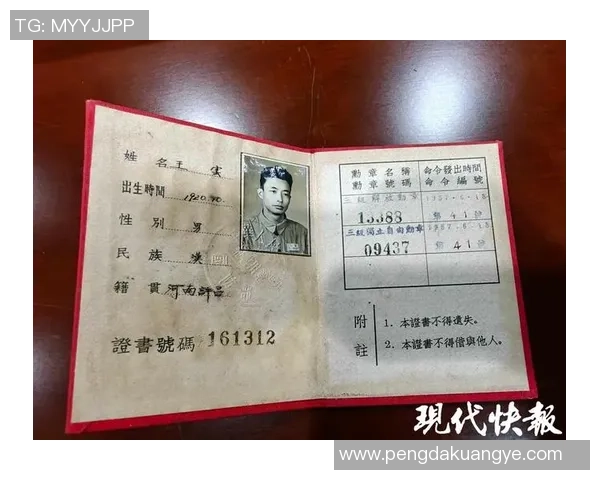 TG: MYYJJPP
姓名 王 寔
出生時間 1920.10
性別 男
民族 漢
籍貫 河南許昌
證書號碼 161312
勳章名稱 命令發出時間
勳章號碼 命令編號
三級解放勳章 1957.6.18
13388 第41號
三級獨立自由勳章 1957.6.18
09437 第41號
附註
1. 本證書不得遺失。
2. 本證書不得借與他人。
現代快報
www.pengdakuangye.com